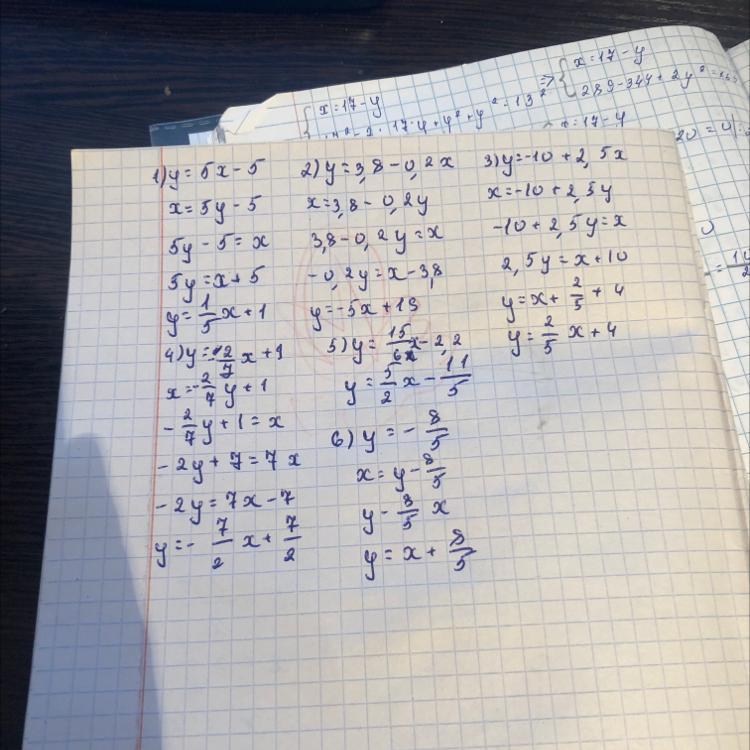 x=17-y
x=17-y
1) y=5x-5
x=5y-5
5y-5=x
5y=x+5
y=1/5 x+1
2) y=3,8-0,2x
x=3,8-0,2y
3,8-0,2y=x
-0,2y=x-3,8
y=-5x+19
3) y=-10+2,5x
x=-10+2,5y
-10+2,5y=x
2,5y=x+10
y=x+2/5+4
y=2/5 x+4
4) y=-2/7 x+1
x=-2/7 y+1
-2/7 y+1=x
-2y+7=7x
-2y=7x-7
y=-7/2 x+7/2
5) y=15/6 x-2,2
y=5/2 x-11/5
6) y=-8/5
x=y-8/5
y-8/5 x
y=x+8/5